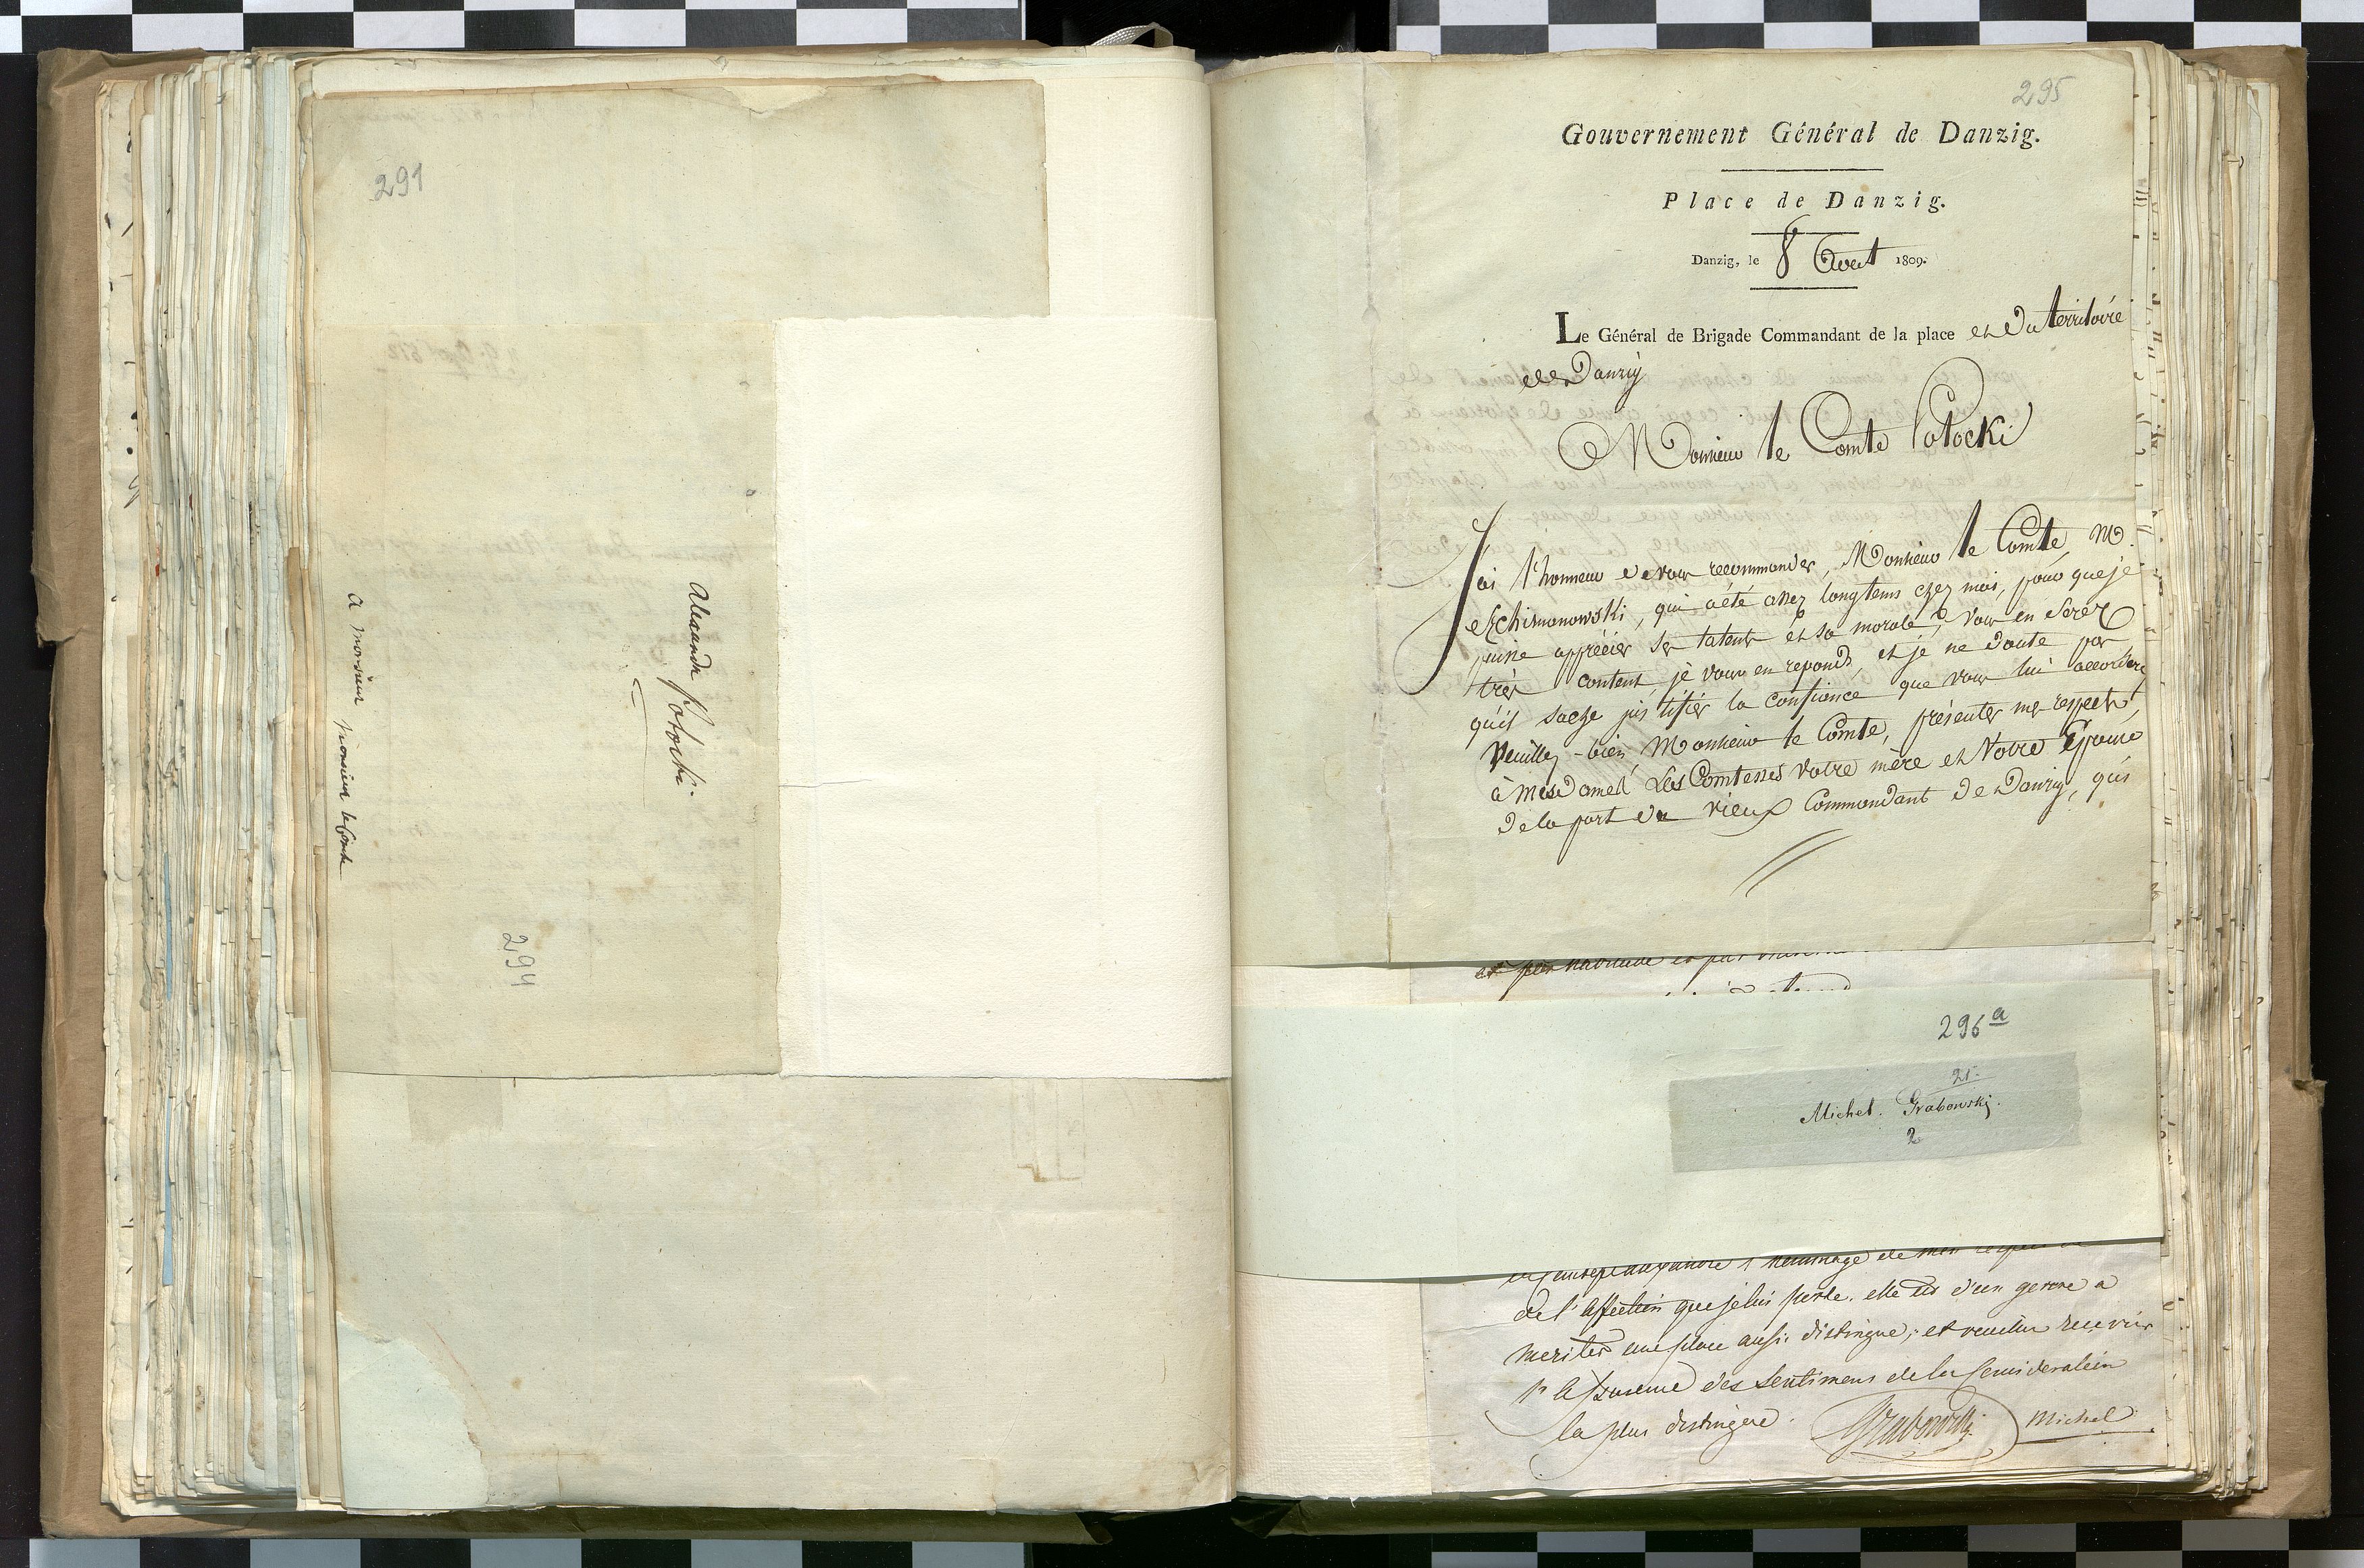 291
Alexandre Potocki.
a monsieur monsieur le Comte
294
295
Gouvernement Général de Danzig.
Place de Danzig.
Danzig, le 8 Aout 1809.
Le Général de Brigade Commandant de la place et du territoire
de Danzig
a Monsieur le Comte Potocki
J'ai l'honneur de vous recommander, Monsieur le Comte, M.
qui a été assez longtems chez moi, pour que je
puisse apprécier ses talents et sa morale, vous en serez
très content, je vous en reponds, et je ne doute pas
qu'il sache justifier la confiance que vous lui accorderez
Veuillez-bien, Monsieur le Comte, présenter mes respects,
à mesdames Les Comtesses votre mère et Votre Epouse
de la part du vieux Commandant de Danzig, qui
296 a
21.
Michel. Grabowski.
2
de l'affection que je lui porte. elle est d'un genre a
meriter une place aussi distingue; et veuillez recevoir
l'assurance des sentimens de la consideration
la plus distingue.
Grabowski Michel